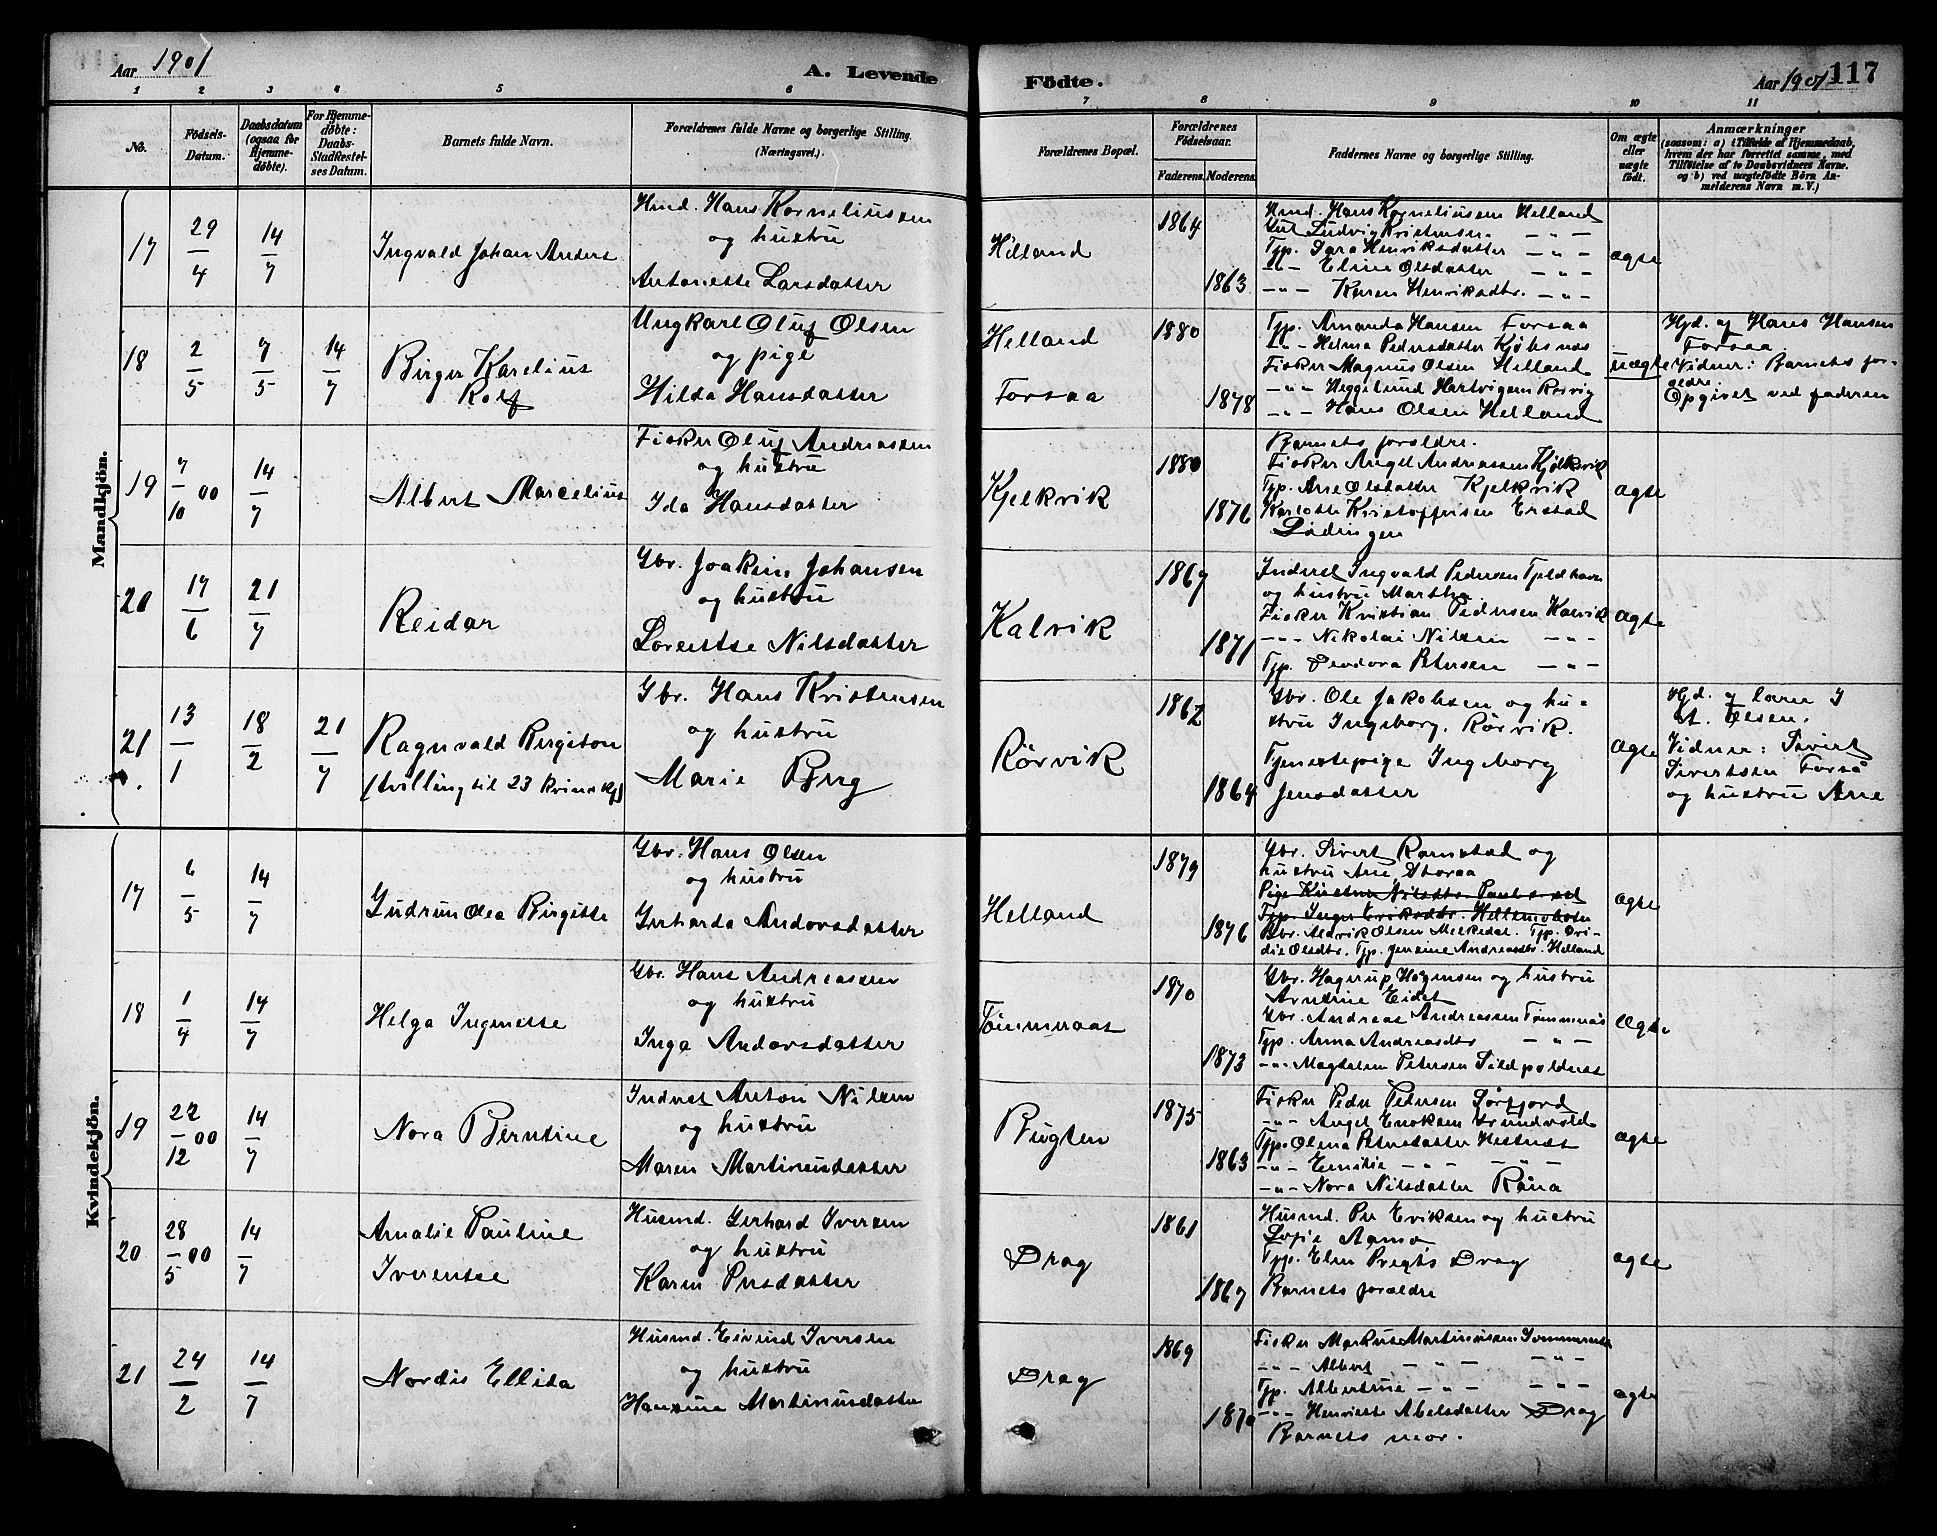 Aar 1901
A. Levende
Födte.
Aar 1901
117
1 2 3 4 5 6 7 8 9 10 11
No.
Födsels-
Datum.
Daabsdatum
(ogsaa for
Hjemme-
döbte).
For Hjemme-
döbte:
Daabs-
Stadfæstel-
ses Datum.
Barnets fulde Navn.
Forældrenes fulde Navne og borgerlige Stilling.
(Næringsvei).
Forældrenes Bopæl.
Forældrenes
Födselsaar.
Faderens. Moderens.
Faddernes Navne og borgerlige Stilling.
Om ægte
eller
uægte
födt.
Anmærkninger
(saasom: a) i Tilfælde af Hjemmedaab,
hvem der har forrettet samme, med
Tilföielse af to Daabsvidners Navne.
og b) ved uægtefödte Börn An-
melderens Navn m. V.)
Mandkjön.
17
29/4
14/7
Ingvald Johan Anders
Hmd. Hans Korneliussen
og hustru
Antonette Larsdatter
Helland
1864
1863
Hmd. Hans Korneliussen Helland
Gut Ludvig Kristensen — " —
Tjp. Sara Henriksdatter — " —
— " — Eline Olsdatter — " —
— " — Karen Henriksdtr. — " —
ægte
18
2/5
7/5
14/7
Birger Karelius
Rolf
Ungkarl Oluf Olsen
og pige
Hilda Hansdatter
Helland
Forsaa
1880
1878
Tjp. Amanda Hansen Forsaa
— " — Helma Pedersdatter Kjøbsnæs
Fisker Magnus Olsen Helland
— " — Heggelund Hartvigsen Rørvig
— " — Hans Olsen Helland
uægte
Hjd. af Hans Hansen
Forsaa.
Vidner: Barnets for-
ældre.
Opgivet ved faderen
19
7/10 00
14/7
Albert Marcelius
Fisker Oluf Andreassen
og hustru
Ida Hansdatter
Kjelkvik
1880
1876
Barnets forældre.
Fisker Angel Andreassen Kjelkvik
Tjp. Ane Olsdatter Kjelkvik
Karlotte Kristoffersen Erstad
Lødingen
ægte
20
17/6
21/7
Reidar
Gbr. Joakim Johansen
og hustru
Lorentse Nilsdatter
Kalvik
1867
1871
Inderst Ingvald Pedersen Tjeldhavn
og hustru Martha
Fisker Kristian Pedersen Kalvik
— " — Nikolai Nilsen — " —
Tjp. Deodora Petersen — " —
ægte
21
13/1
18/2
21/7
Ragnvald Birgiton
(tvilling til 23 kvindekj)
Gbr. Hans Kristensen
og hustru
Marie Berg
Rørvik
1862
1864
Gbr. Ole Jakobsen og hu-
stru Ingeborg, Rørvik.
Tjenestepige Ingeborg
Jensdatter
ægte
Hjd. af
Olsen.
Vidner: Sivert
Sivertsen Forså
og hustru Ane
Kvindekjön.
17
6/5
14/7
Gudrun Olea Birgitte
Gbr. Hans Olsen
og hustru
Gerharda Andorsdatter
Helland
1879
1876
Gbr. Sivert Ramstad og
hustru Ane, Storaa
Gbr. Aldrik Olsen Melkedal. Tjp.
Olsdtr. Tjp. Jensine Andreasdtr. Helland
ægte
18
1/4
14/7
Helga Ingmette
Gbr. Hans Andreassen
og hustru
Inga Andorsdatter
Tømmnaas
1870
1873
Gbr. Hagerup Hagensen og hustru
Arntine Eidet
Gbr. Andreas Andreassen Tømmnås
Tjp. Anna Andreasdtr — " —
— " — Magdalena Petersen Sildpoldnæs
ægte
19
22/12 00
14/7
Nora Berntine
Inderst Anton Nilsen
og hustru
Maren Martinusdatter
Bugten
1875
1863
Fisker Peder Pedersen Sørfjord
— " — Angel Enoksen Grundvold
Tjp. Olena Petersdatter Hestnæs
— " — Emilie — " — — " —
— " — Nora Nilsdatter Råna
ægte
20
28/5 00
14/7
Amalie Pauline
Iverense
Husmd. Gerhard Iversen
og hustru
Karen Persdatter
Drag
1861
1867
Husmd. Per Eriksen og hustru
Sofie Aamo
Tjp. Elen Drag
Barnets forældre
ægte
21
24/2
14/7
Nordis Ellida
Husmd. Eivind Iversen
og hustru
Hansine Martinusdatter
Drag
1869
1870
Fisker Markus Martinussen
— " — Albert — " — — " —
Tjp. Albertine — " — — " —
— " — Henriette Abelsdatter Drag
Barnets mor.
ægte